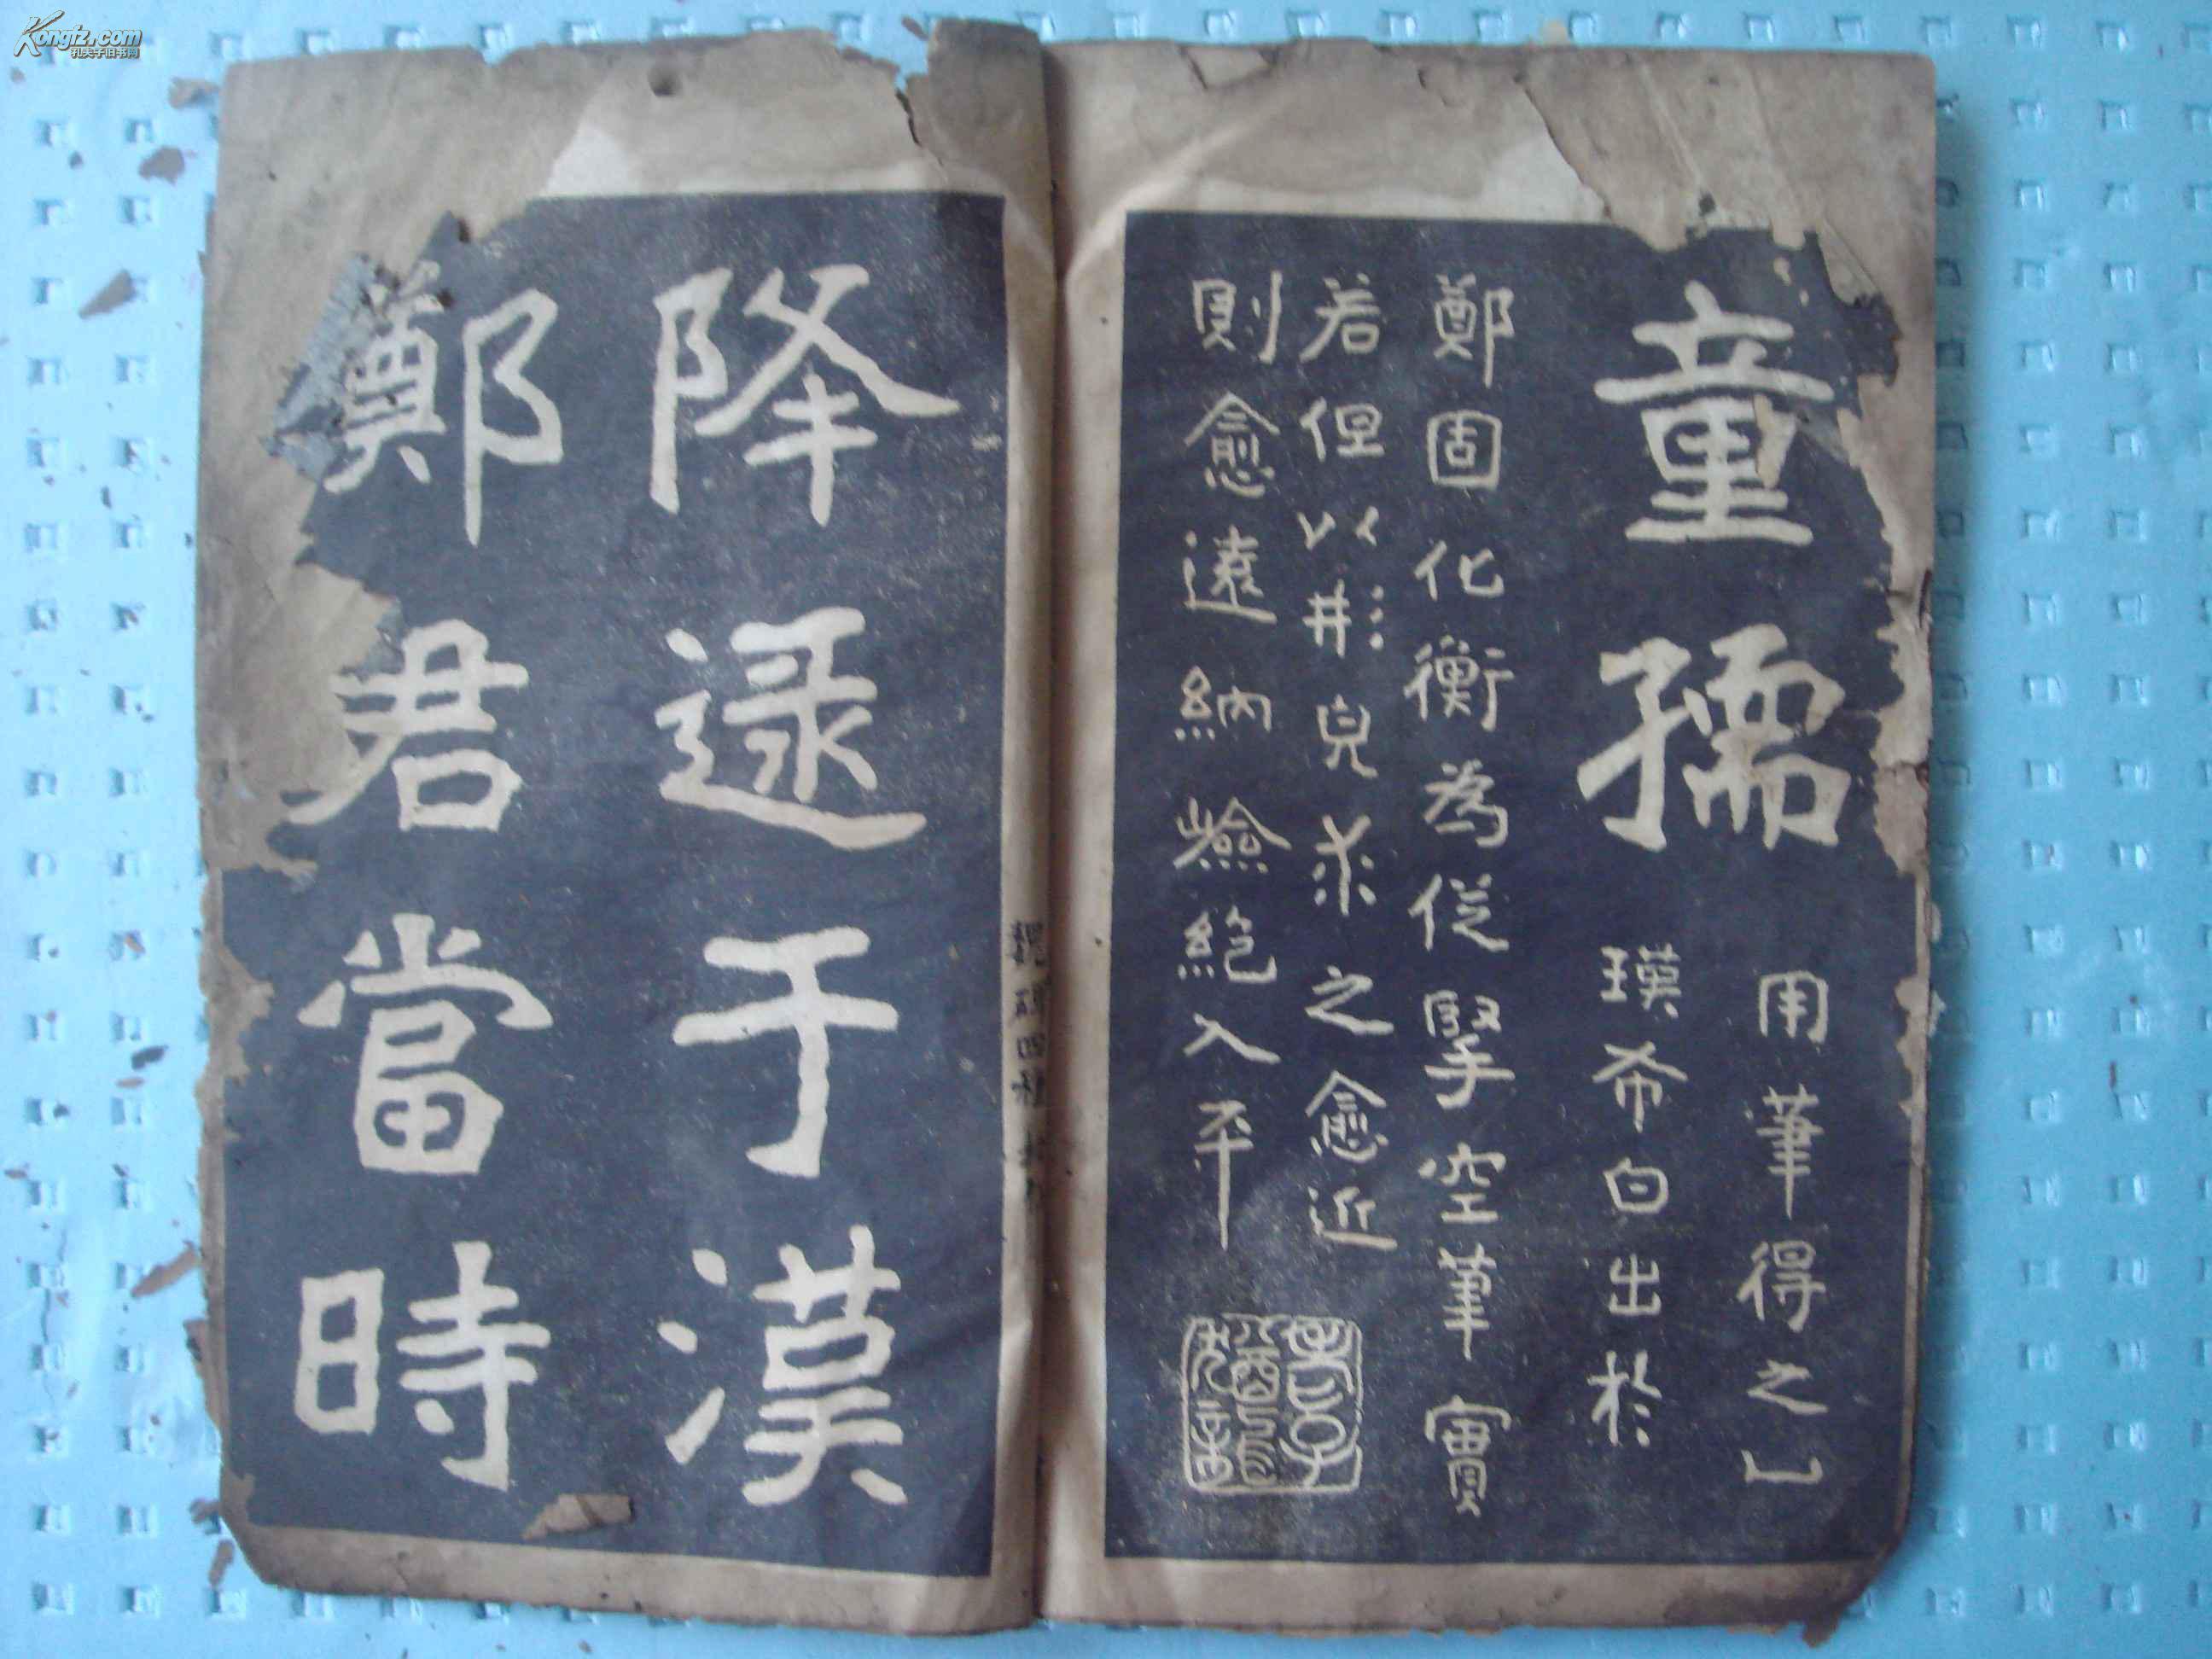 童孺
用筆得之乙
瑛希白出於
鄭固化衡為從掔空筆實
若但以形皃求之愈近
則愈遠納險絕入平
降逯于漢
鄭君當時
Kongfz.com
孔夫子旧书网